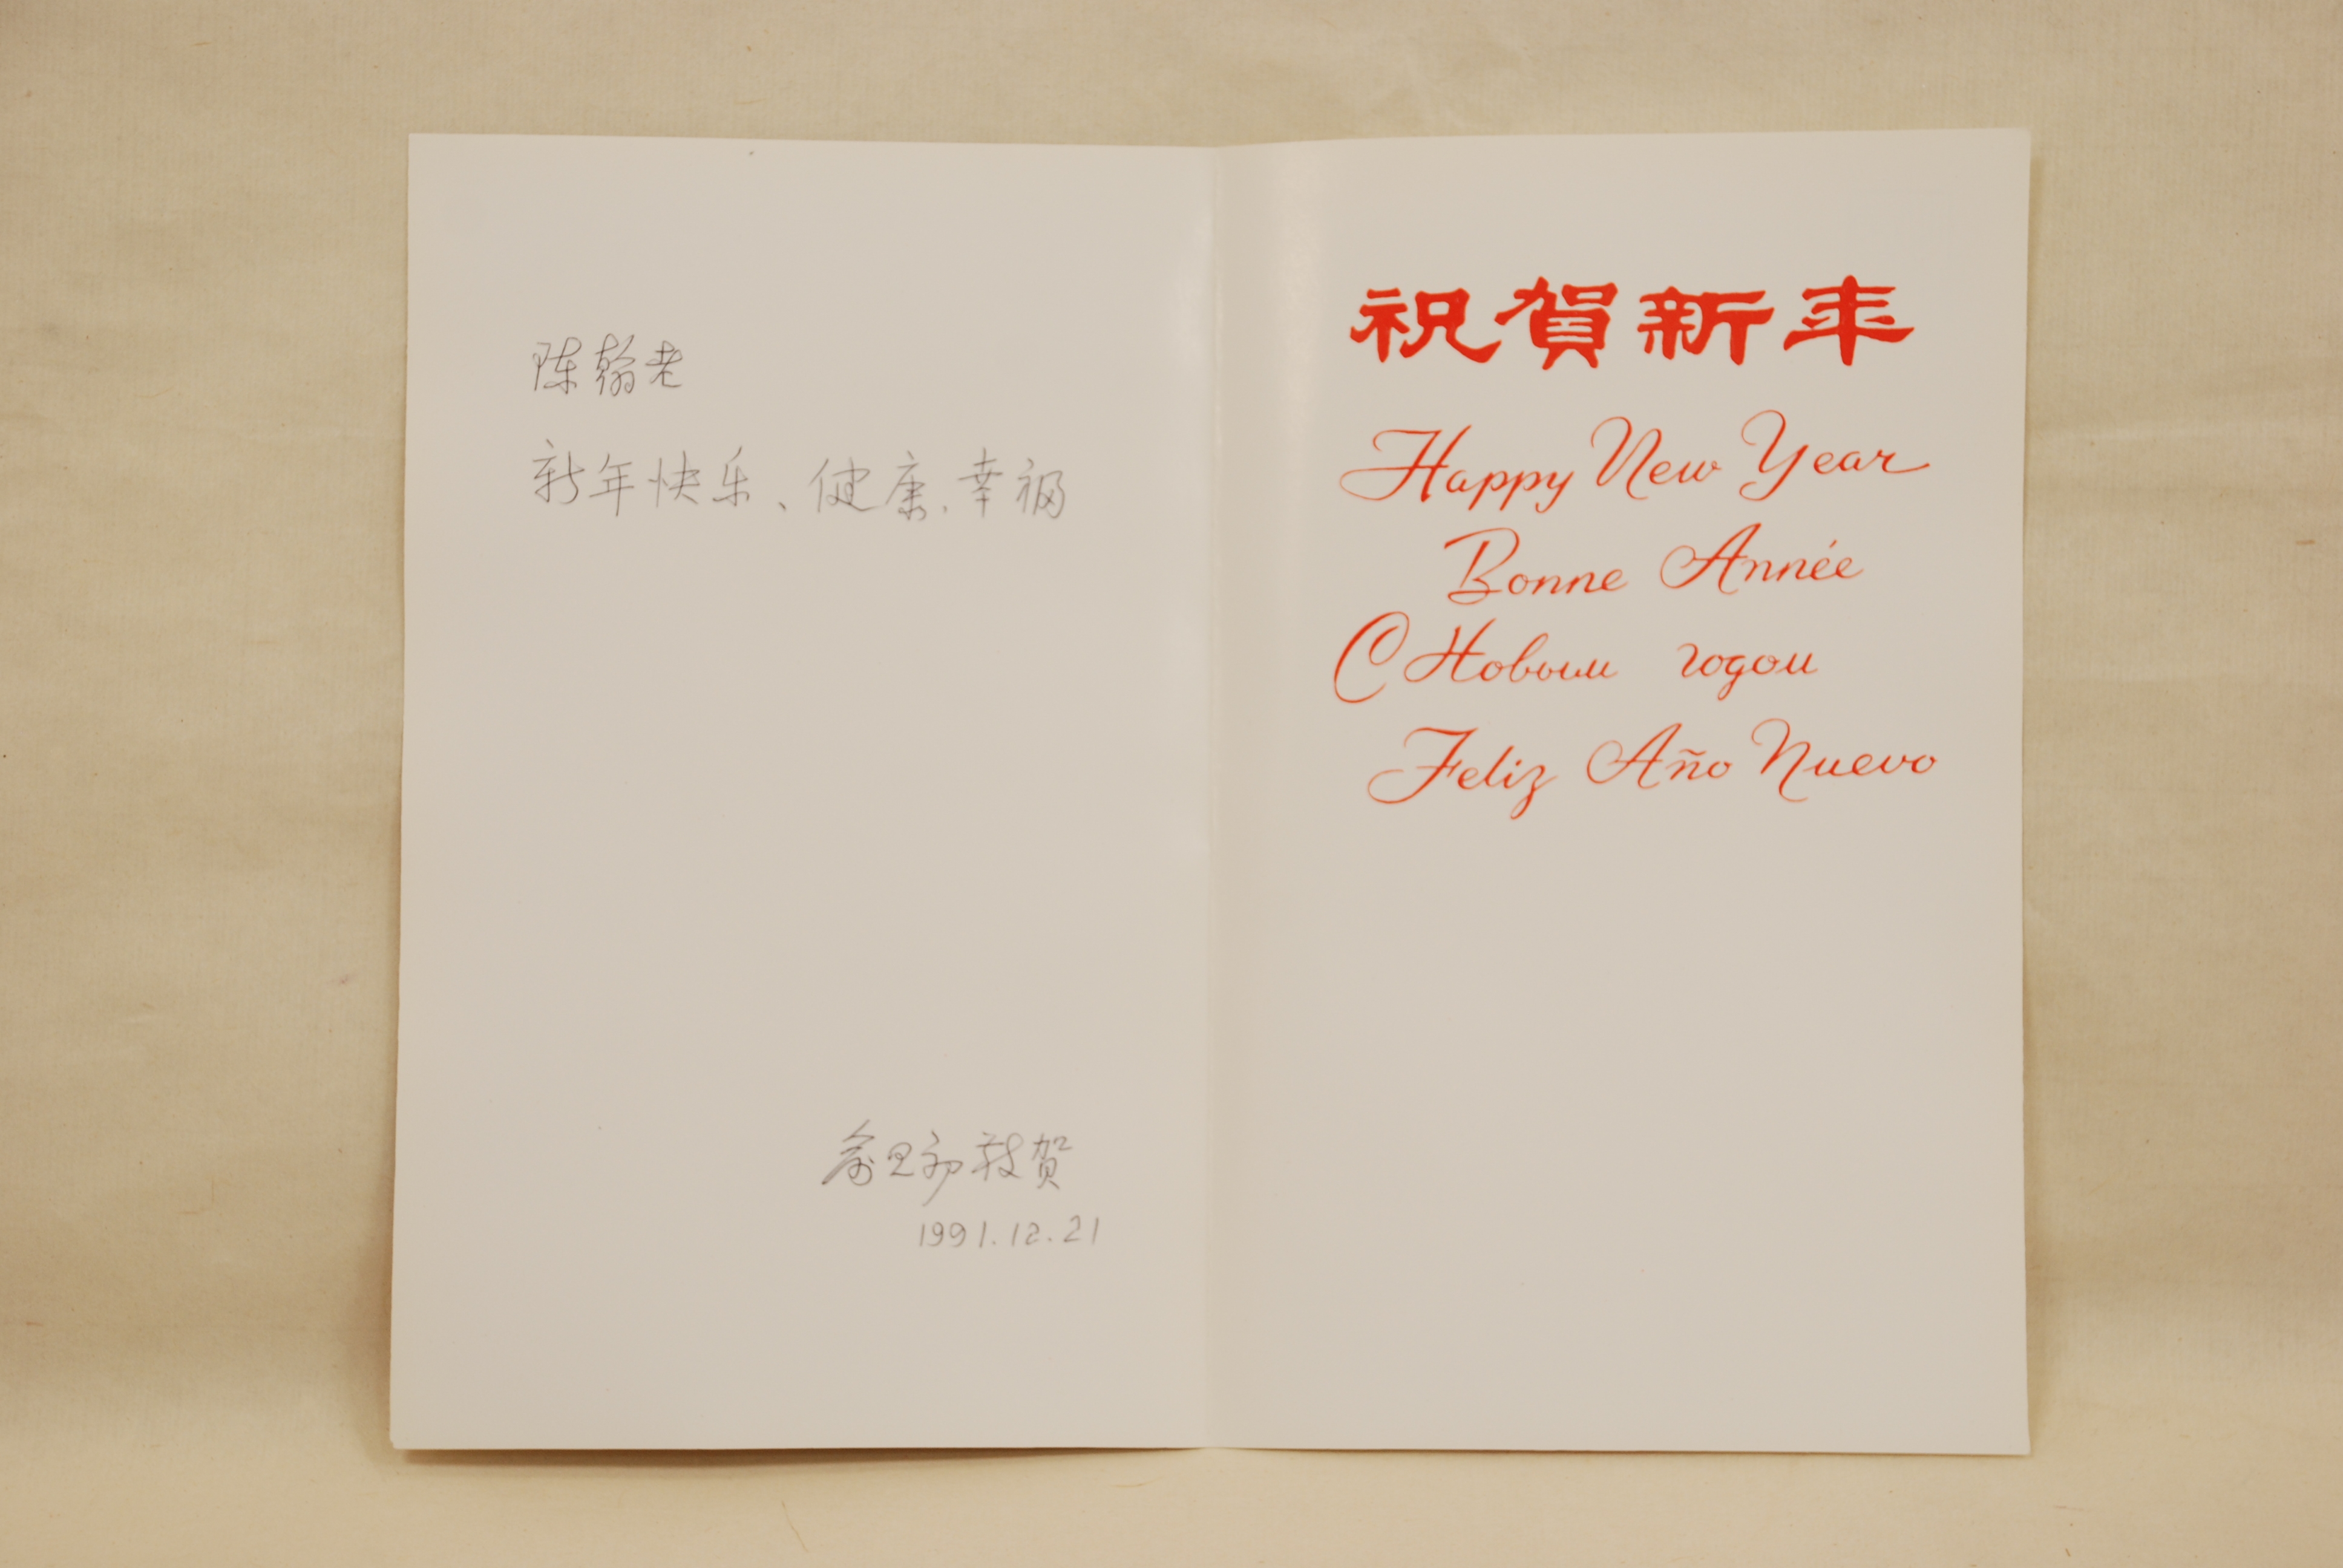 陈翰老
新年快乐、健康、幸福
敬贺
1991.12.21
祝賀新年
Happy New Year
Bonne Année
С Новым годом
Feliz Año Nuevo